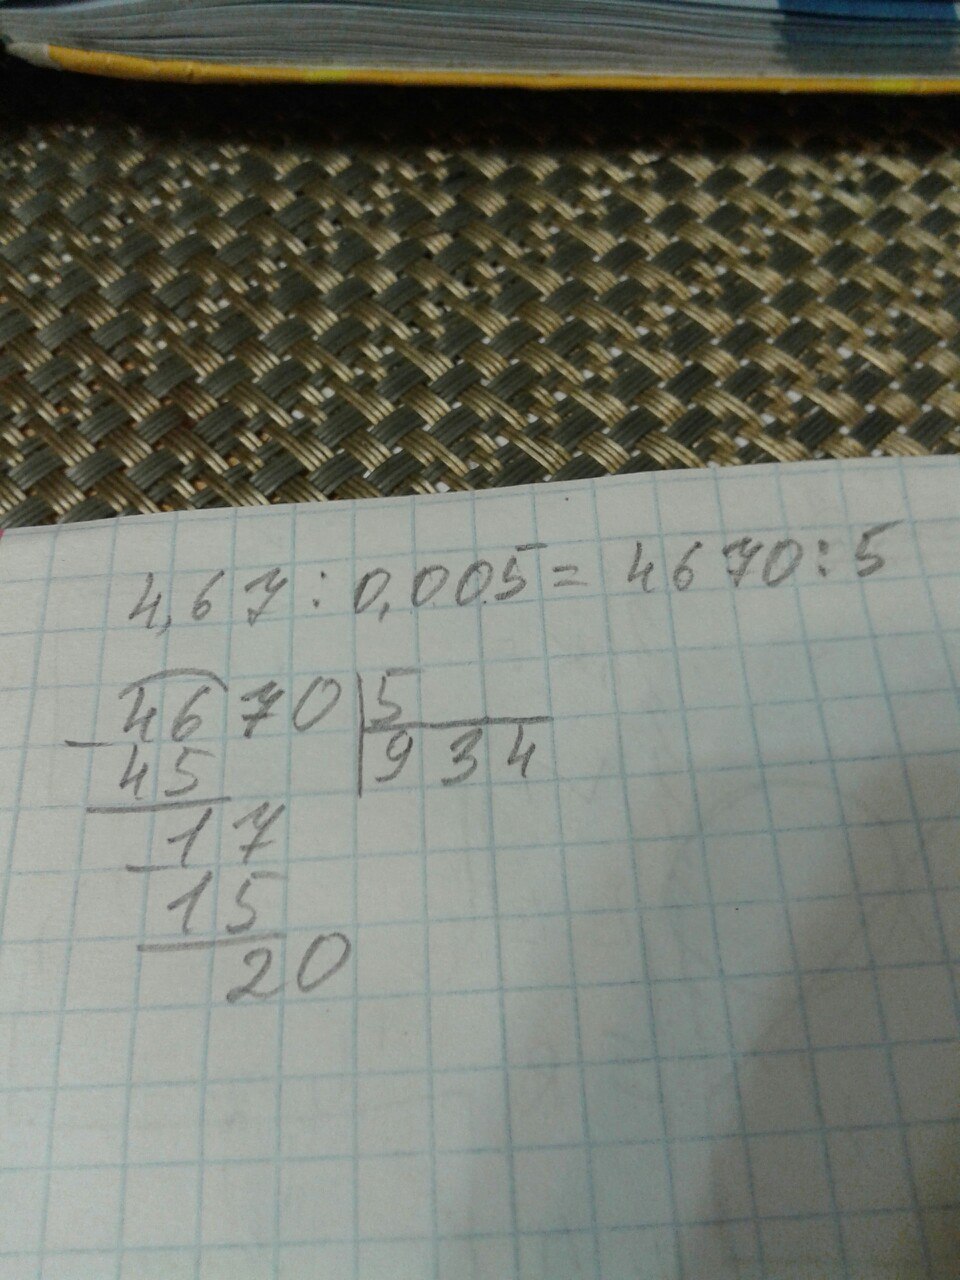 4,67 : 0,005 = 4670 : 5
4670 5
45 934
17
15
20